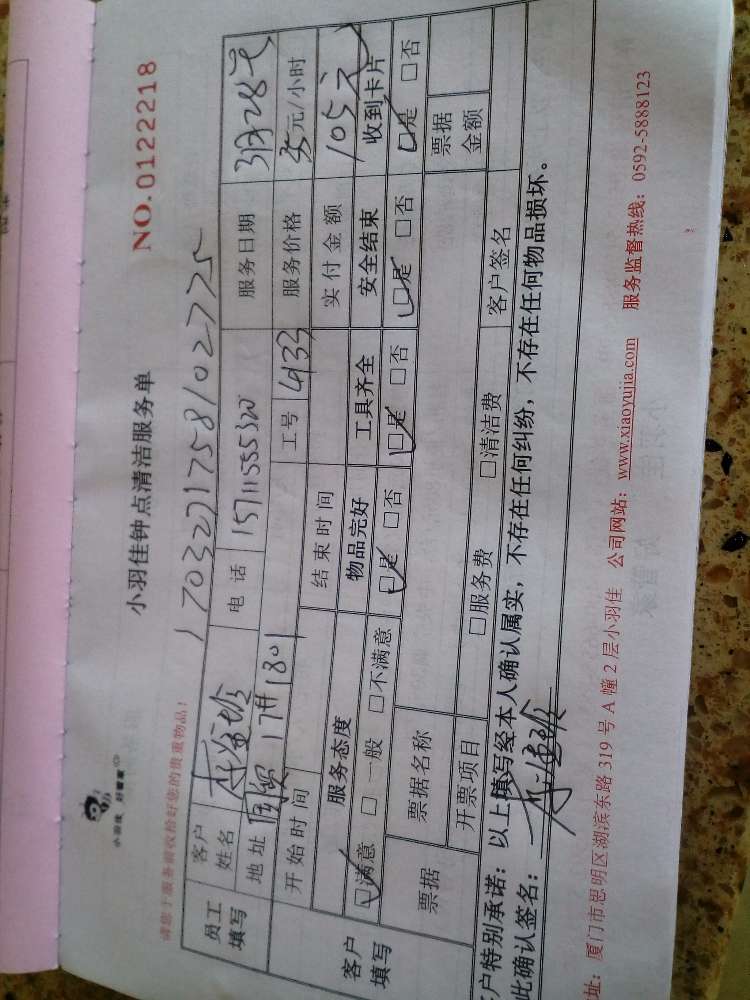 小羽佳 好管家
小羽佳钟点清洁服务单
NO.0122218
请您于服务前收拾好您的贵重物品!
17032717581027725
员工填写 客户姓名 电话 15711555320 服务日期 3月28天
地址 国贸 17# 1801 工号 4133 服务价格 35元/小时
开始时间 结束时间 实付金额 105元
客户填写 服务态度 物品完好 工具齐全 安全结束 收到卡片
☑满意 □一般 □不满意 ☑是 □否 ☑是 □否 ☑是 □否 ☑是 □否
票据 票据名称 票据金额
开票项目 □服务费 □清洁费 客户签名
客户特别承诺:以上填写经本人确认属实,不存在任何纠纷,不存在任何物品损坏。
此确认签名:
址:厦门市思明区湖滨东路 319 号 A 幢 2 层小羽佳 公司网站:www.xiaoyujia.com 服务监督热线:0592-5888123